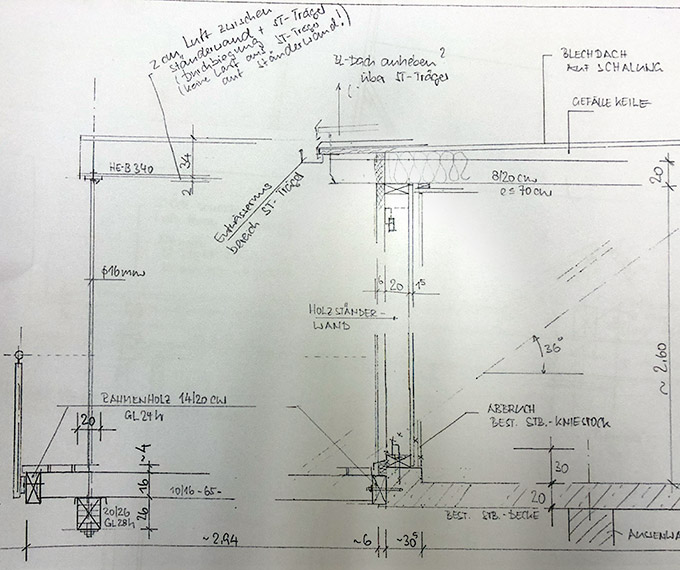 2 cm Luft zwischen
Ständerwand + ST-Träger
(Durchbiegung
(keine Last aus ST-Träger
auf Ständerwand!)
Dach anheben ?
über ST-Träger
BLECHDACH
AUF SCHALUNG
GEFÄLLE KEILE
HE-B 340
34
2
Entwässerung
bereich ST-Träger
8/20 cm
e ≤ 70 cm
20
ϕ16mm
6
20
15
HOLZSTÄNDER-
WAND
36°
~ 2.60
RAHMENHOLZ 14/20 CM
GL24h
20
ABBRUCH
BEST. STB.-KNIESTOCK
~4
16
26
10/16 -65-
20/26
GL28h
30
20
BEST. STB.-DECKE
AUSSENWA
~2.94
~6
~30⁵